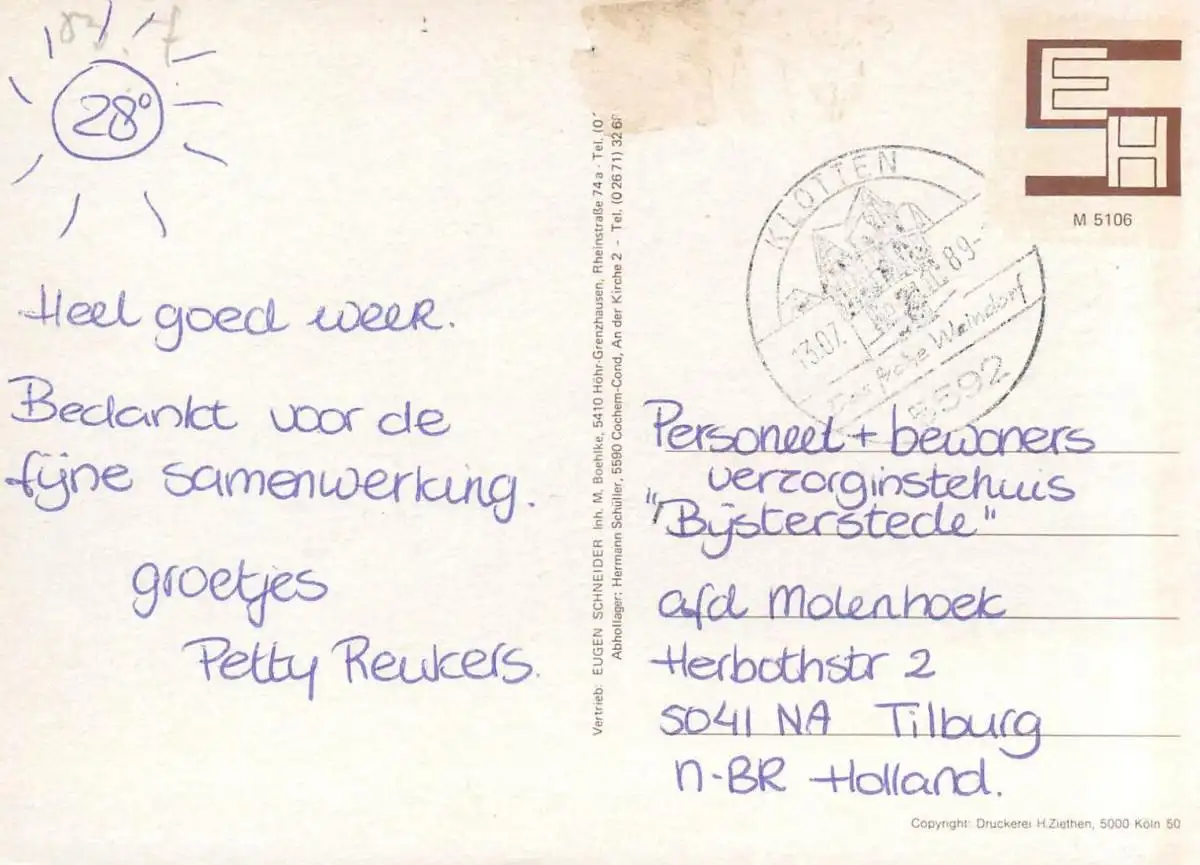 28°
Heel goed weer.
Bedankt voor de
fijne samenwerking.
groetjes
Petty Reukers.
Vertrieb: EUGEN SCHNEIDER Inh. M. Boehlke, 5410 Höhr-Grenzhausen, Rheinstraße 74a - Tel. (0
Abhollager: Hermann Schüller, 5590 Cochem-Cond, An der Kirche 2 - Tel. (02671) 3268
ESH
M 5106
KLOTTEN
13.07. 89-
Das frohe Weindorf
5592
Personeel + bewoners
verzorginstehuis
"Bijsterstede"
afd Molenhoek
Herbothstr 2
5041 NA Tilburg
n-BR Holland.
Copyright: Druckerei H.Ziethen, 5000 Köln 50